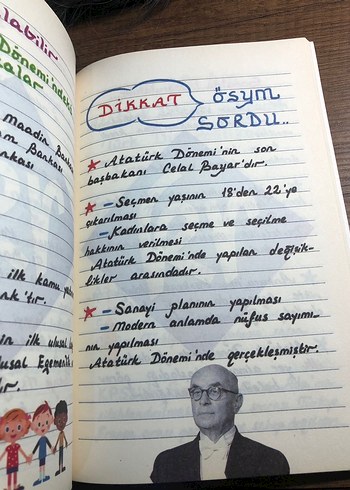 labilir
Dönemi'ndeki
alar
Maadin Bankası
m Bankası
nkası
ilk kamu
nk'tır.
in ilk ulusal
usal Egemenlik
ır.
DİKKAT
ÖSYM
SORDU..
★ Atatürk Dönemi'nin son
başbakanı Celal Bayar'dır.
★ – Seçmen yaşının 18'den 22'ye
çıkarılması
– Kadınlara seçme ve seçilme
hakkının verilmesi
Atatürk Dönemi'nde yapılan değişik-
likler arasındadır.
★ – Sanayi planının yapılması
– Modern anlamda nüfus sayımı-
nın yapılması
Atatürk Dönemi'nde gerçekleşmiştir.